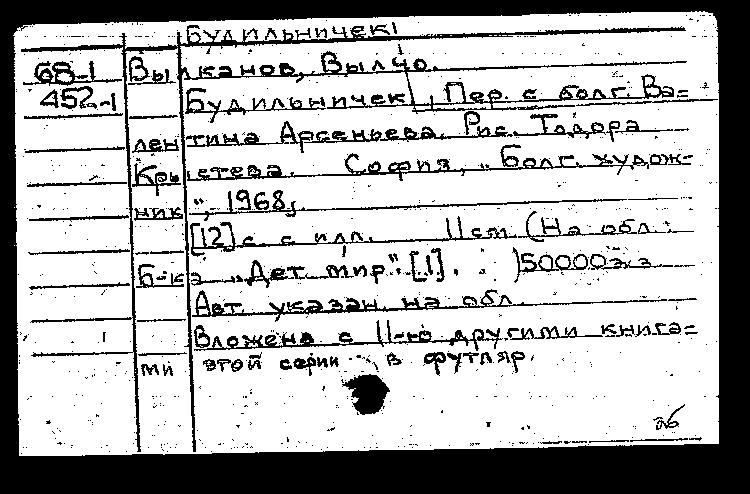 Будильничек!
68-1 Вылканов, Вылчо.
452-1 Будильничек!, Пер. с болг. Ва=
лентина Арсеньева. Рис. Тодора
Крыстева. София, "Болг. худож-
ник", 1968,
[12] с. с илл. 11 см (На обл.:
Б-ка "Дет. мир". [1]. . )50000 э.
Авт. указан на обл.
Вложена с 11-ю другими книга=
ми этой серии в футляр.